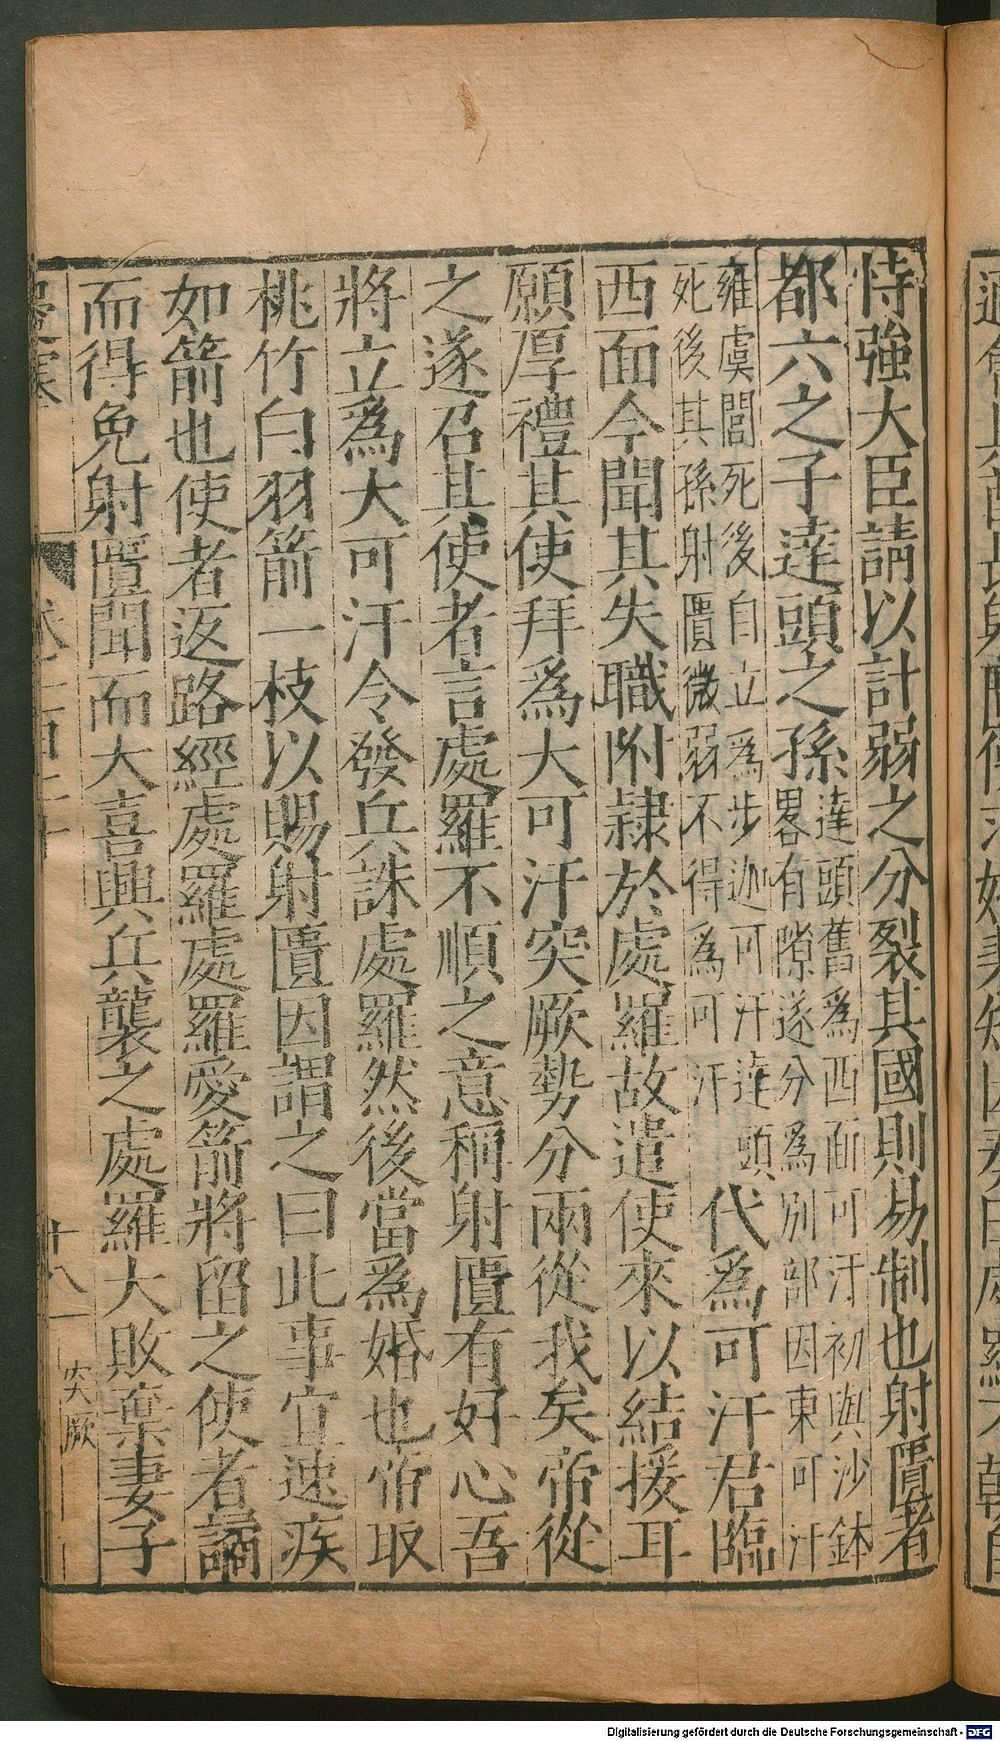 恃強大臣請以計弱之分裂其國則易制也射匱者
都六之子達頭之孫達頭舊為西面可汗初與沙鉢
畧有隙遂分為別部因東可汗
雍虞閭死後自立為步迦可汗達頭
死後其孫射匱微弱不得為可汗代為可汗君臨
西面今聞其失職附隷於處羅故遣使來以結援耳
願厚禮其使拜爲大可汗突厥勢分兩從我矣帝從
之遂召其使者言處羅不順之意稱射匱有好心吾
將立爲大可汗令發兵誅處羅然後當爲婚也帝取
桃竹白羽箭一枝以賜射匱因謂之曰此事宜速疾
如箭也使者返路經處羅處羅愛箭將留之使者譎
而得免射匱聞而大喜興兵襲之處羅大敗棄妻子
十八
突厥
Digitalisierung gefördert durch die Deutsche Forschungsgemeinschaft - DFG